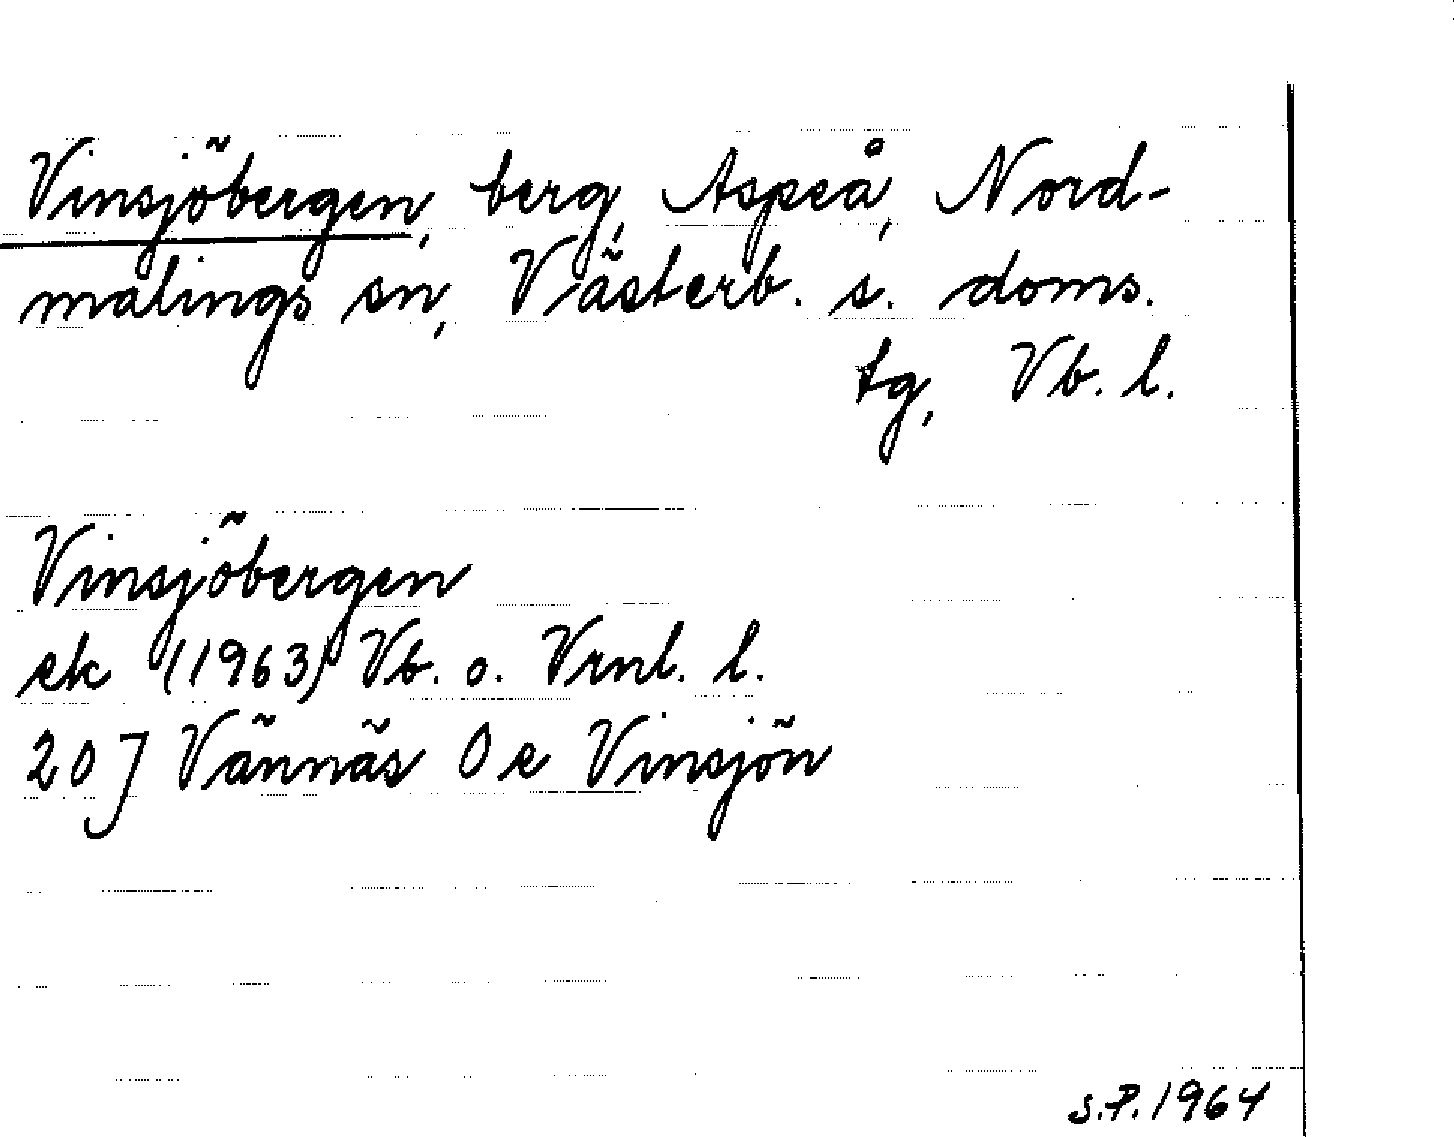 Vinsjöbergen, berg, Aspeå, Nord-
malings sn, Västerb. s. doms.
tg, Vb. l.
Vinsjöbergen
ek (1963) Vb. o. Vrnl. l.
20 J Vännäs 0 e Vinsjön
S.P. 1964